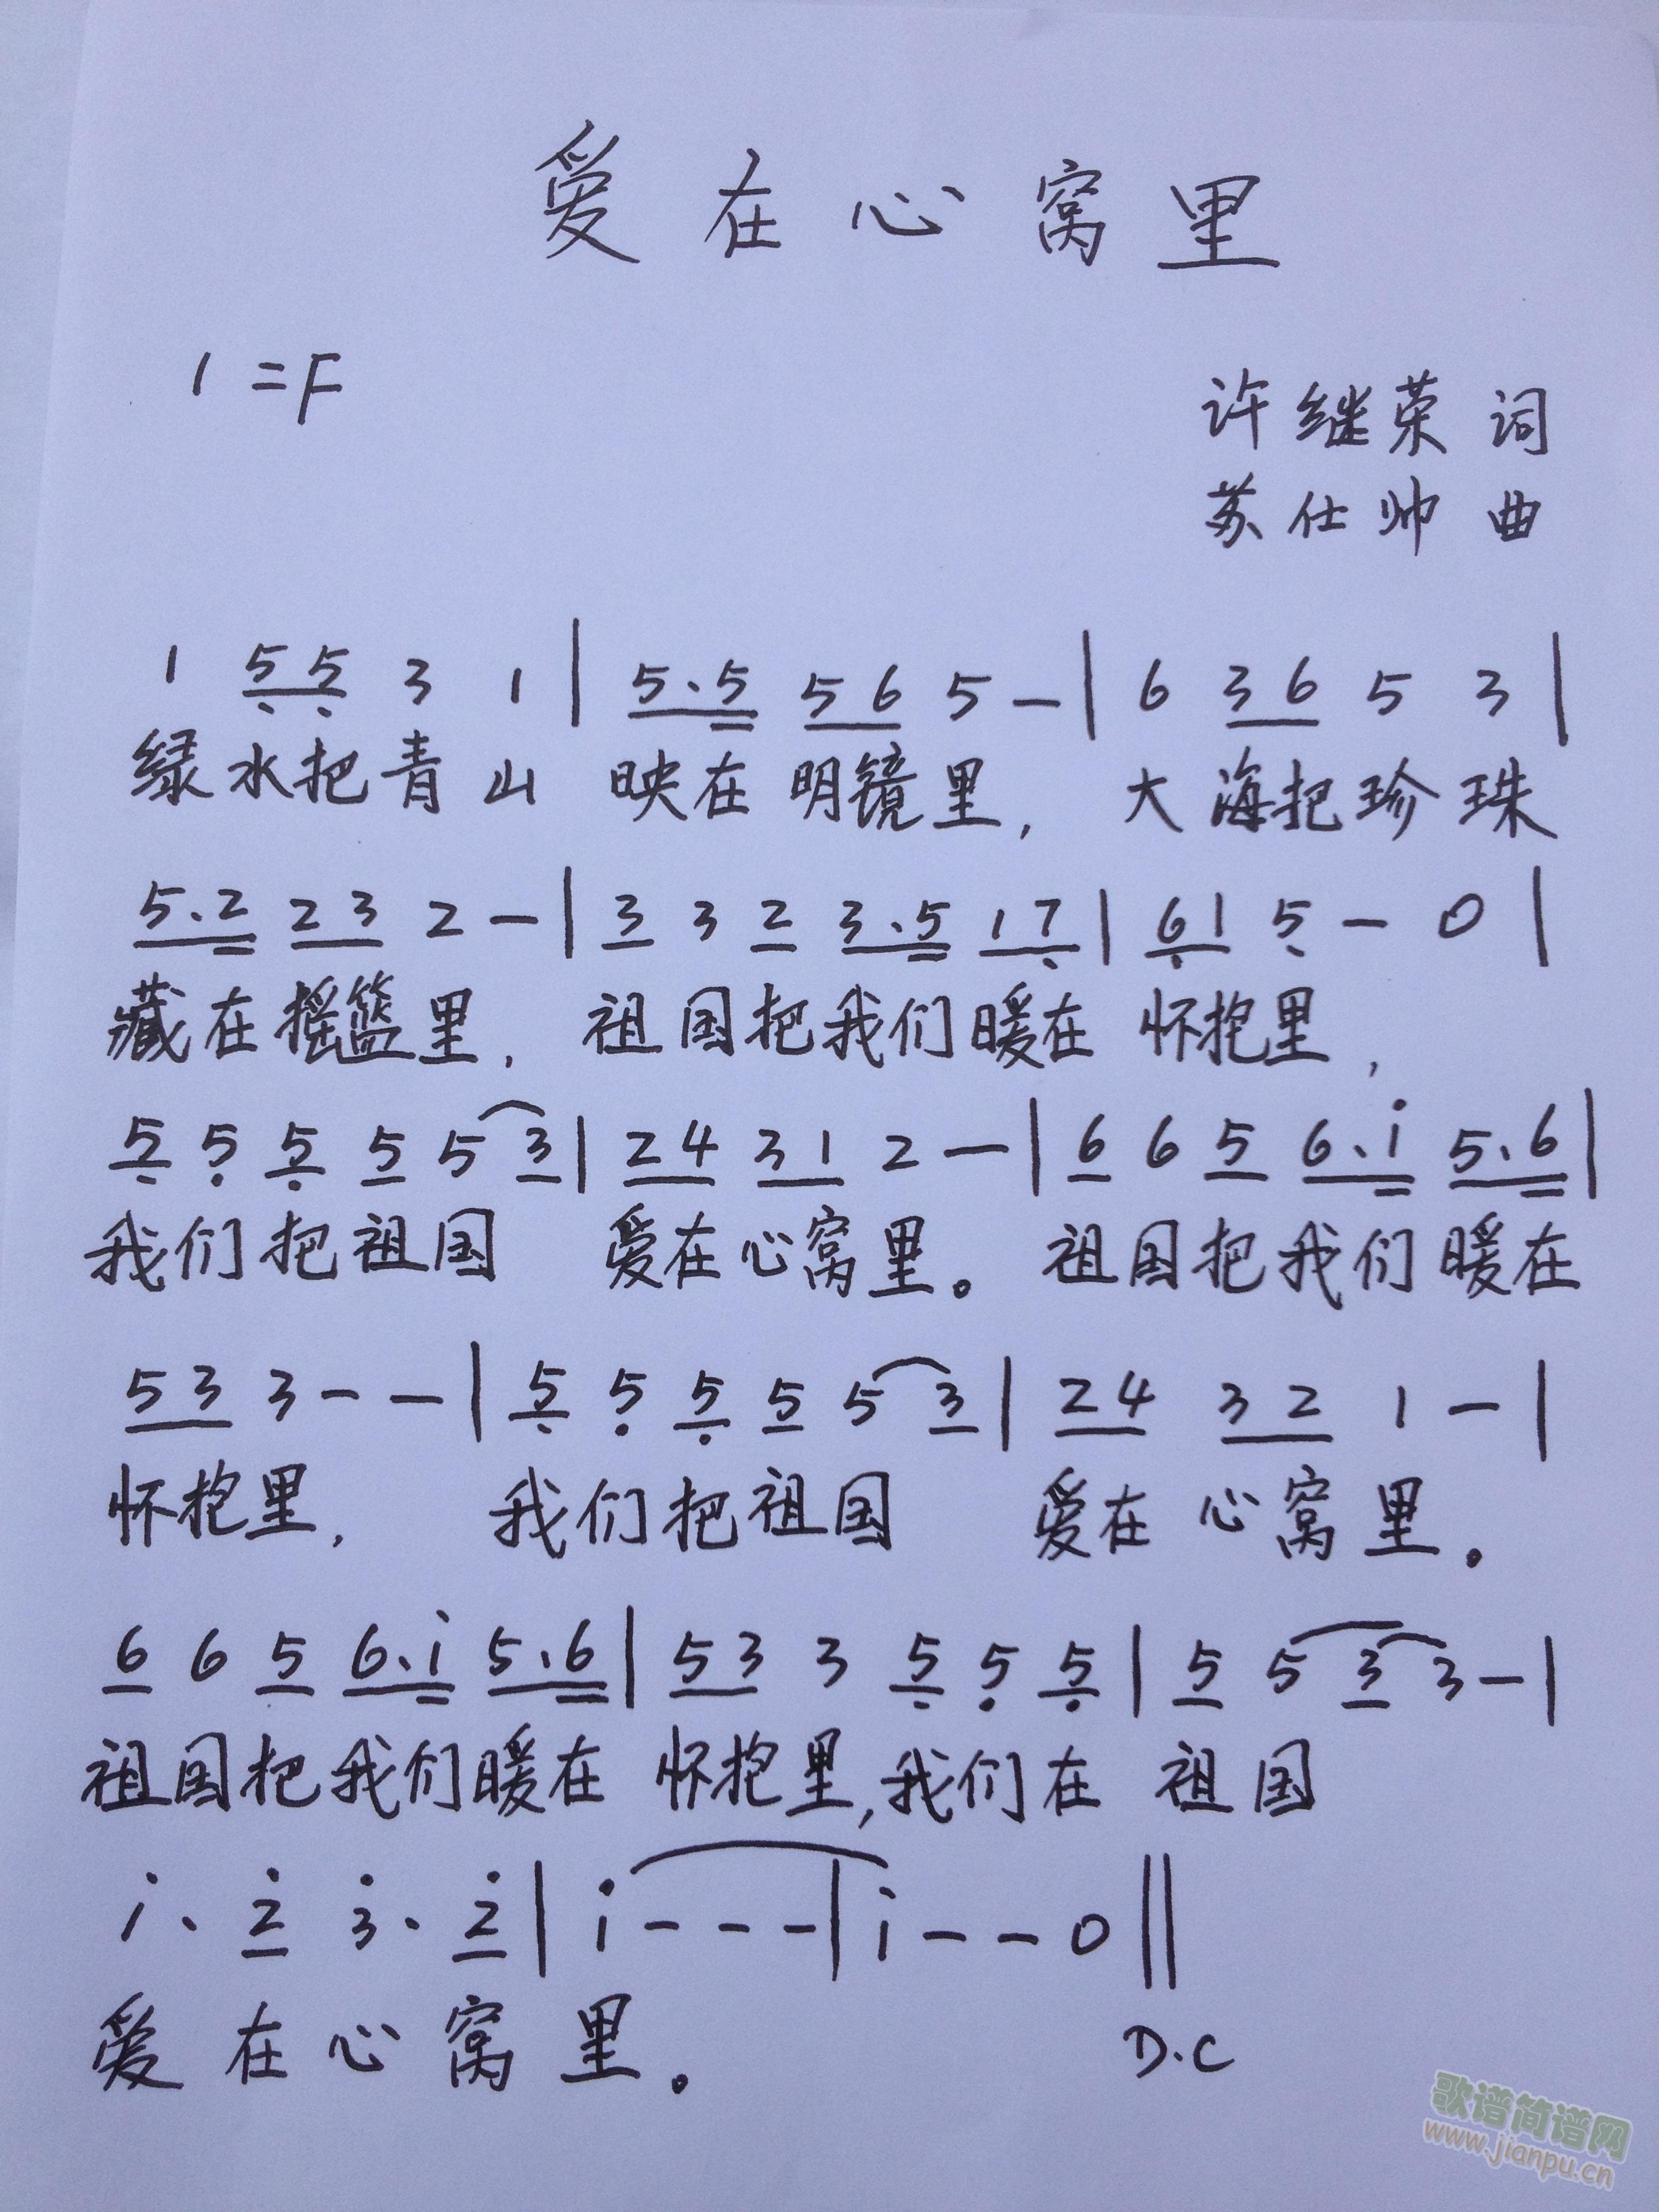 爱在心窝里
1=F
许继荣 词
苏仕帅 曲
1 5̣5̣ 3 1 | 5.5 56 5 — | 6 36 5 3 |
绿水把青山 映在明镜里, 大海把珍珠
5.2 23 2 — | 3 3 2 3.5 17̣ | 6̣1 5̣ — 0 |
藏在摇篮里, 祖国把我们暖在 怀抱里,
5̣ 5̣ 5̣ 5 5 3 | 24 31 2 — | 6 6 5 6.i 5.6 |
我们把祖国 爱在心窝里。 祖国把我们暖在
53 3 — — | 5̣ 5̣ 5̣ 5 5 3 | 24 32 1 — |
怀抱里, 我们把祖国 爱在心窝里。
6 6 5 6.i 5.6 | 53 3 5̣ 5̣ 5̣ | 5 5 3 3 — |
祖国把我们暖在 怀抱里,我们在 祖国
i. 2̇ 3̇. 2̇ | i — — — | i — — 0 ||
爱在心窝里。 D.C
歌谱简谱网
www.jianpu.cn